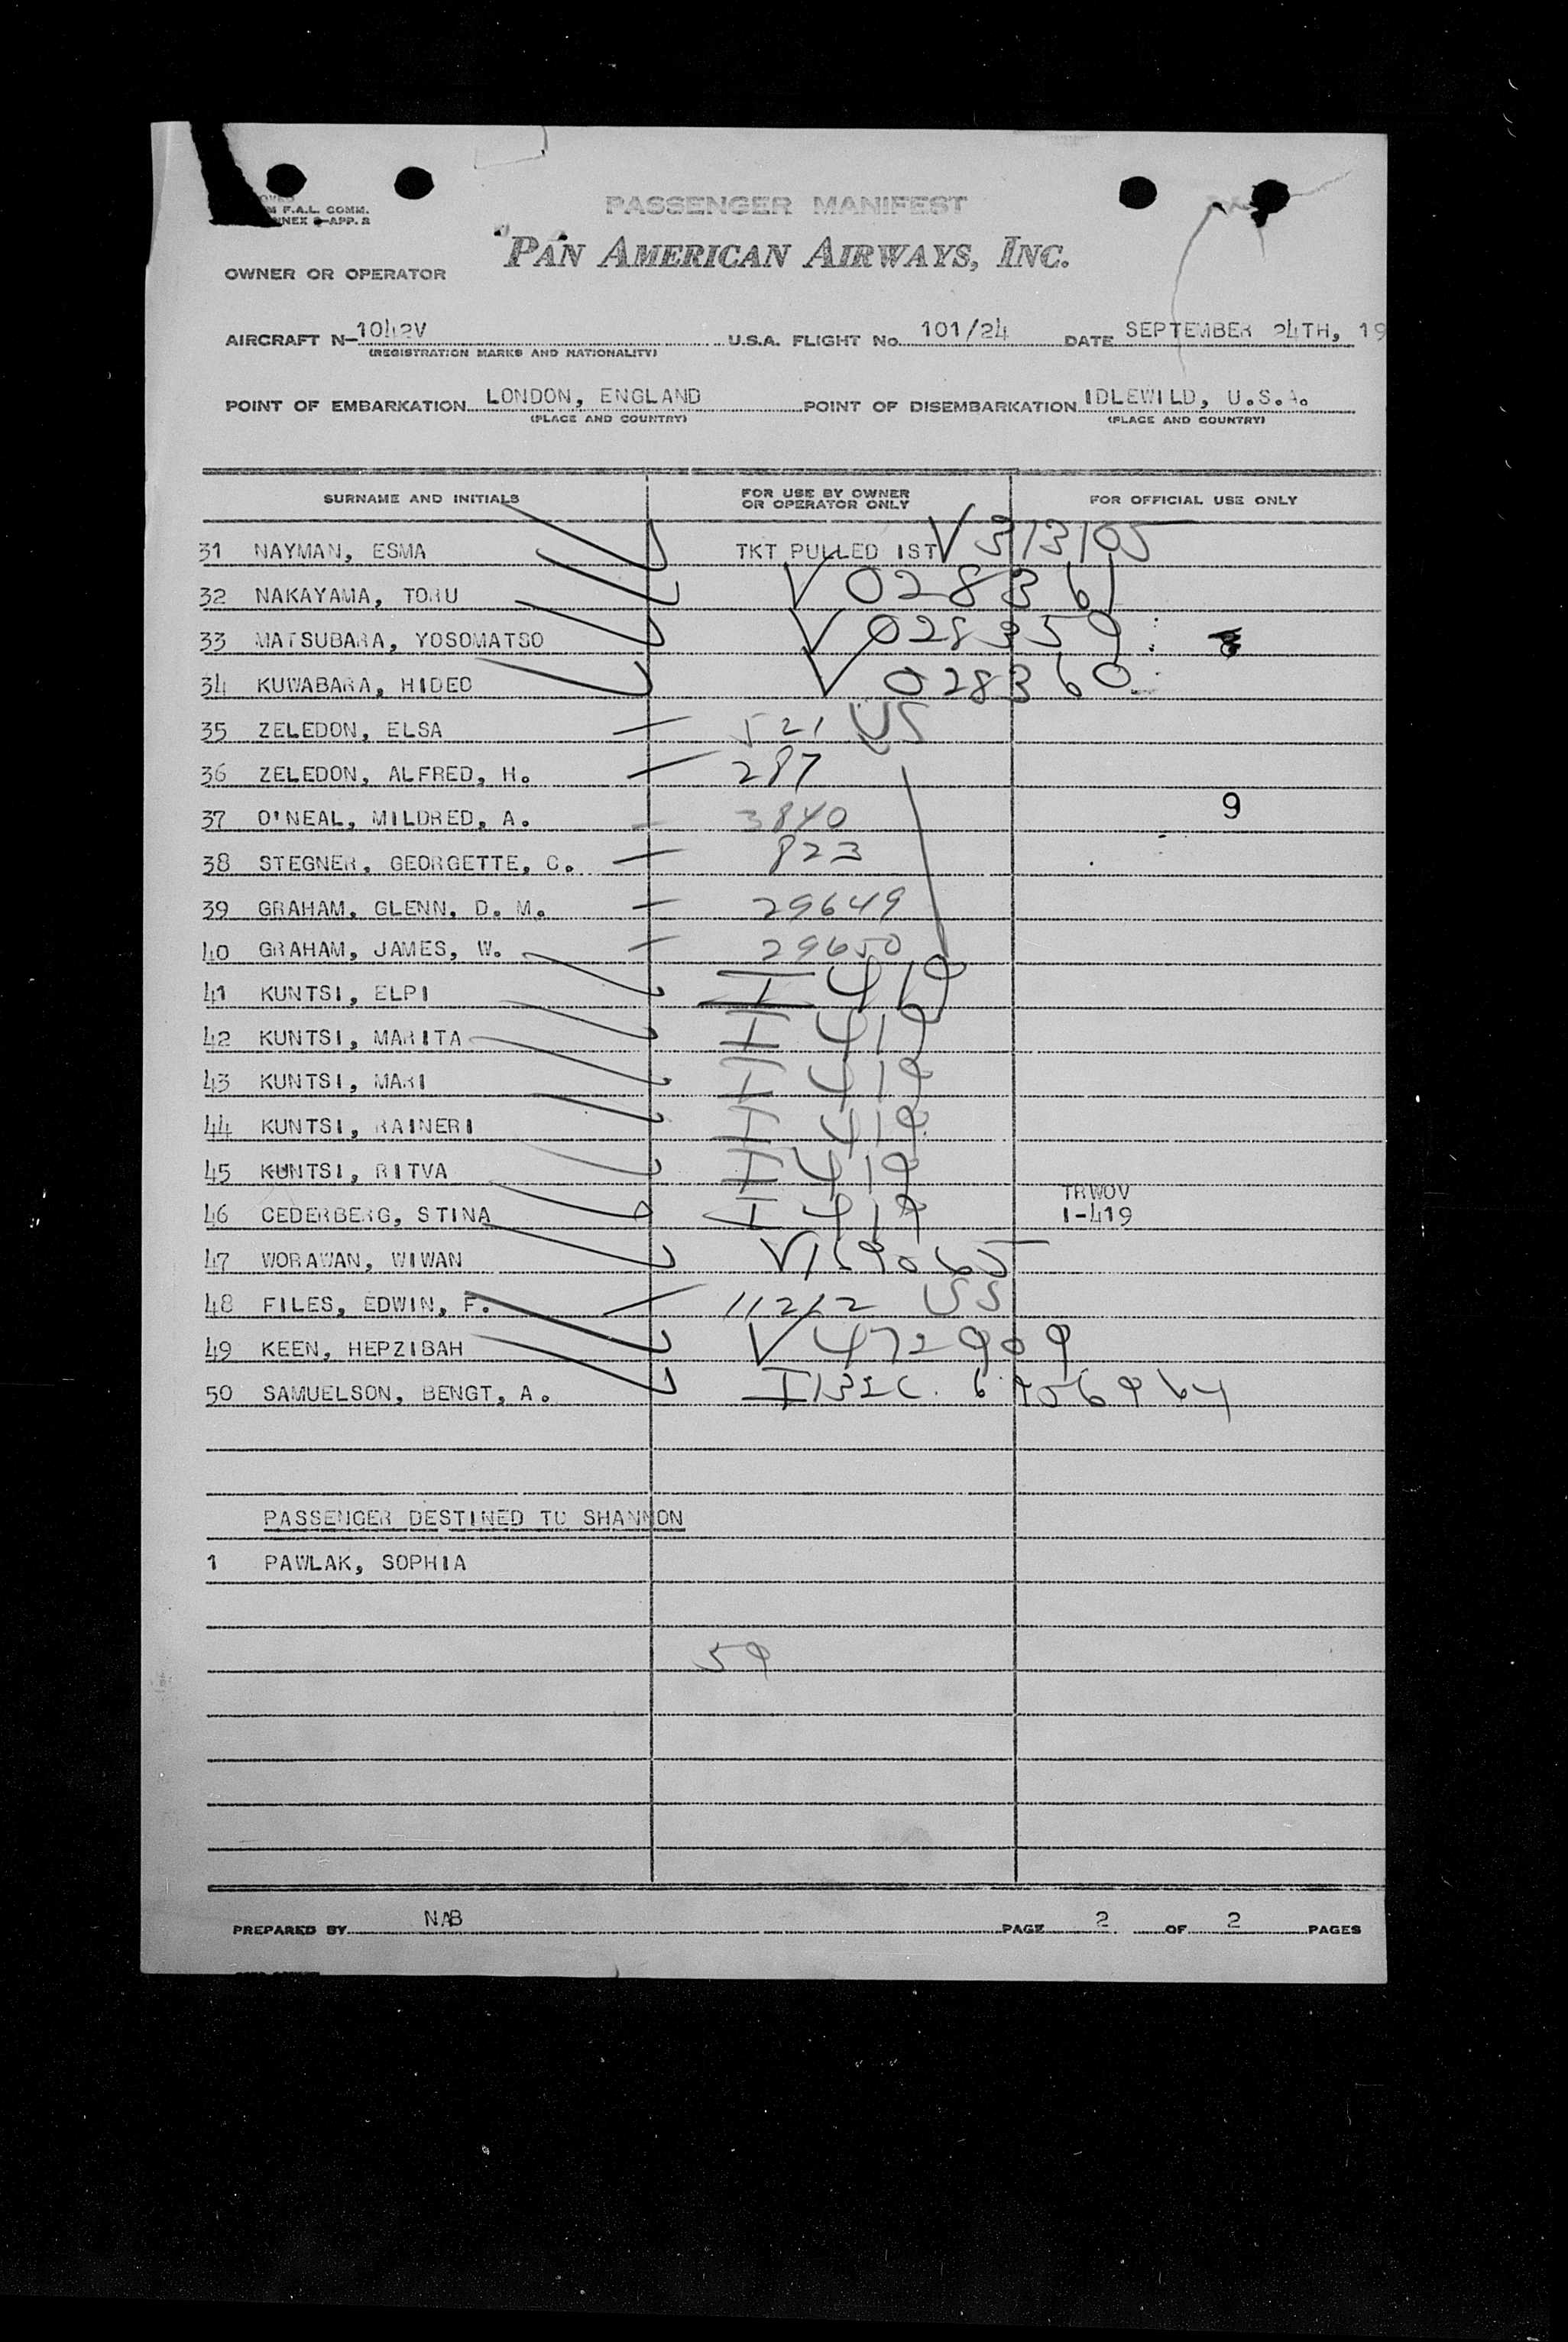 M F.A.L. COMM.
NNEX 9—APP. 2
PASSENGER MANIFEST
PAN AMERICAN AIRWAYS, INC.
OWNER OR OPERATOR
AIRCRAFT N-1042V U.S.A. FLIGHT No. 101/24 DATE SEPTEMBER 24TH, 19
(REGISTRATION MARKS AND NATIONALITY)
POINT OF EMBARKATION LONDON, ENGLAND POINT OF DISEMBARKATION IDLEWILD, U.S.A.
(PLACE AND COUNTRY) (PLACE AND COUNTRY)
SURNAME AND INITIALS FOR USE BY OWNER OR OPERATOR ONLY FOR OFFICIAL USE ONLY
31 NAYMAN, ESMA TKT PULLED IST V 313105
32 NAKAYAMA, TORU V 028361
33 MATSUBARA, YOSOMATSO V 028359
34 KUWABARA, HIDEO V 028360
35 ZELEDON, ELSA — 521 US
36 ZELEDON, ALFRED, H. — 287
37 O'NEAL, MILDRED, A. — 3840 9
38 STEGNER, GEORGETTE, C. — 823
39 GRAHAM, GLENN, D. M. — 29649
40 GRAHAM, JAMES, W. — 29650
41 KUNTSI, ELPI I 419
42 KUNTSI, MARITA I 419
43 KUNTSI, MARI I 419
44 KUNTSI, RAINERI I 419
45 KUNTSI, RITVA I 419
46 CEDERBERG, STINA I 419 TRWOV I-419
47 WORAWAN, WIWAN V 169065
48 FILES, EDWIN, F. — 11212 US
49 KEEN, HEPZIBAH V 472909
50 SAMUELSON, BENGT, A.
PASSENGER DESTINED TO SHANNON
1 PAWLAK, SOPHIA
59
PREPARED BY NAB PAGE 2 OF 2 PAGES